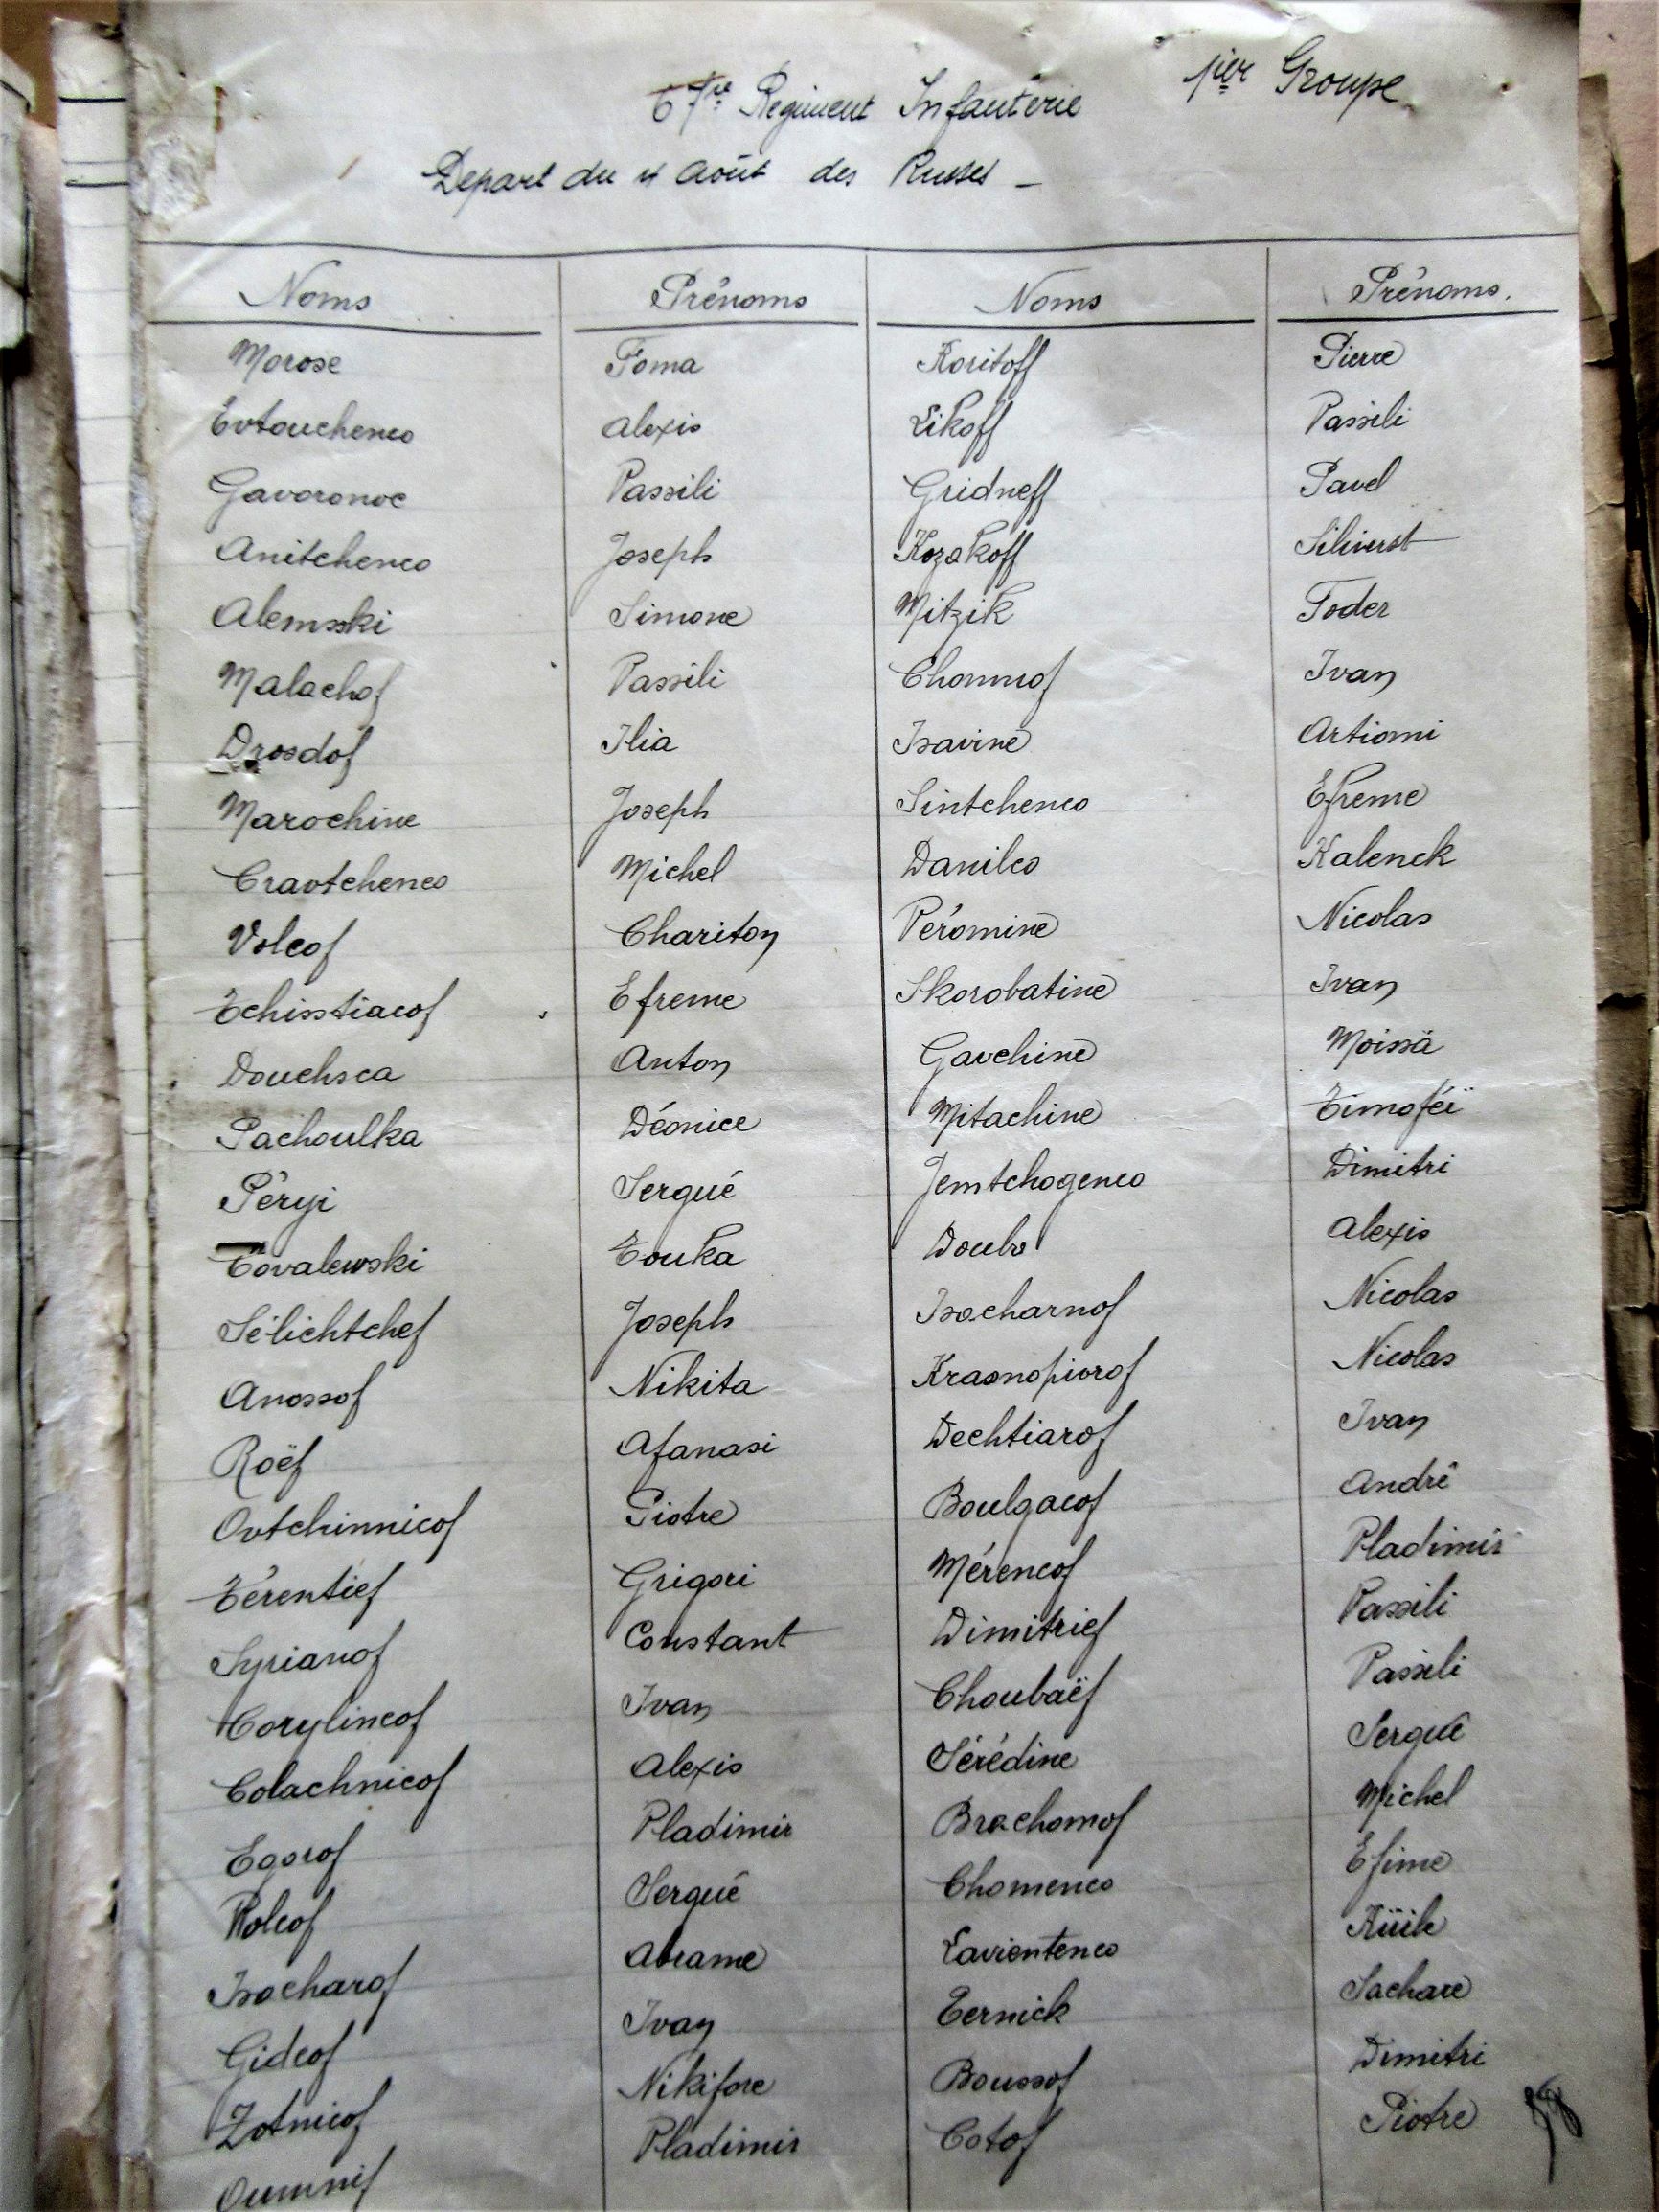 67re Regiment Infanterie 1ier Groupe
Depart du 4 Août des Russes -
Noms Prénoms Noms Prénoms.
Morose Foma Koritoff Pierre
Evtouchenco Alexis Likoff Vassili
Gavoronoc Vassili Gridneff Pavel
Anitchenco Joseph Kozakoff Siliverst
Alemsski Simone Mitzik Foder
Malachof Vassili Chommof Ivan
Drosdof Ilia Isavine Artiomi
Marochine Joseph Sintchenco Efreme
Cravtchenco Michel Danilco Kalenck
Volcof Chariton Péromine Nicolas
Tchisstiacof Efreme Skorobatine Ivan
Douchsca Anton Gavchine Moissä
Pachoulka Déonice Mitachine Timoféï
Péryi Sergué Jemtchogenco Dimitri
Covalewski Touka Doubo Alexis
Sélichtchef Joseph Isocharnof Nicolas
Anossof Nikita Krasnopiorof Nicolas
Roëf Afanasi Dechtiarof Ivan
Ovtchinnicof Piotre Boulgacof André
Térentief Grigori Mérencof Vladimir
Syrianof Constant Dimitrief Vassili
Corylincof Ivan Choubaëf Vassili
Colachnicof Alexis Sérédine Sergué
Egorof Vladimir Brachomof Michel
Volcof Sergué Chomenco Efime
Isocharof Abrame Lavientenco Küile
Gideof Ivan Ternick Sachare
Zotnicof Nikifore Boussof Dimitri
Oumnif Vladimir Cotof Piotre